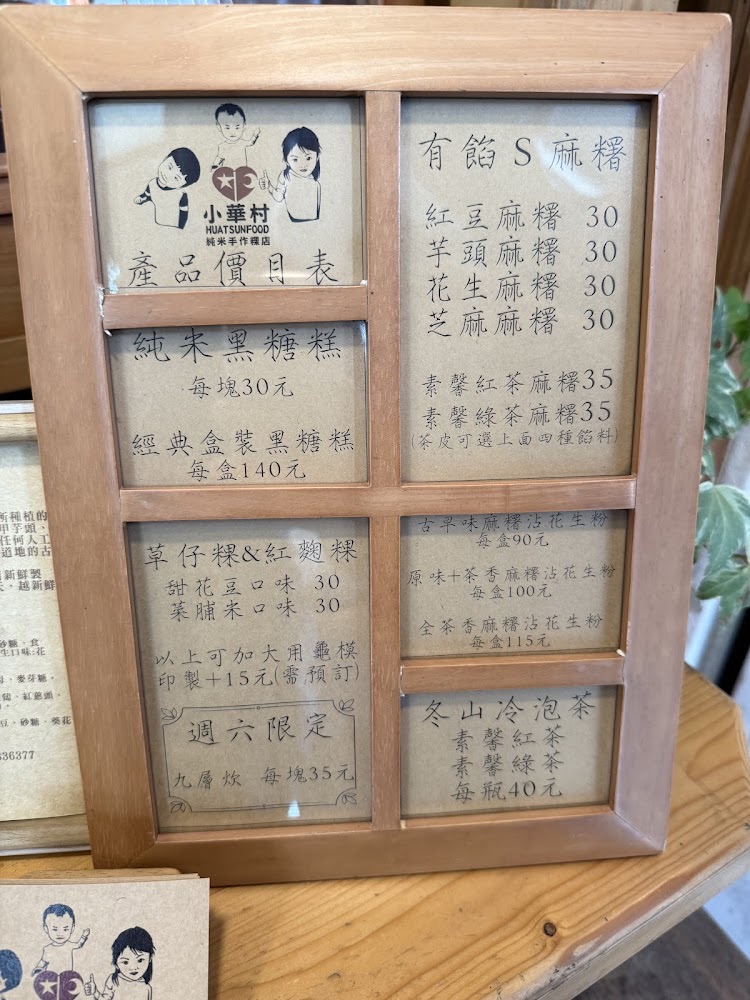 小華村
HUATSUNFOOD
純米手作粿店
產品價目表
純米黑糖糕
每塊30元
經典盒裝黑糖糕
每盒140元
草仔粿&紅麴粿
甜花豆口味 30
菜脯米口味 30
以上可加大用龜模
印製+15元(需預訂)
週六限定
九層炊 每塊35元
有餡S麻糬
紅豆麻糬 30
芋頭麻糬 30
花生麻糬 30
芝麻麻糬 30
素馨紅茶麻糬35
素馨綠茶麻糬35
(茶皮可選上面四種餡料)
古早味麻糬沾花生粉
每盒90元
原味+茶香麻糬沾花生粉
每盒100元
全茶香麻糬沾花生粉
每盒115元
冬山冷泡茶
素馨紅茶
素馨綠茶
每瓶40元
所種植的
甲芋頭、
任何人工
道地的古
新鮮製
天，越新鮮
砂糖、食
生口味:花
麥芽糖、
紅蔥頭、
豆、砂糖、葵花
36377